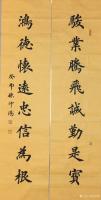 駿業騰飛誠勤是寶
鴻德懷遠忠信為根